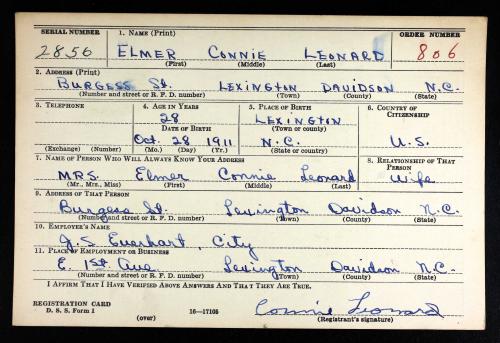 SERIAL NUMBER 1. NAME (Print) ORDER NUMBER
2856 ELMER CONNIE LEONARD 806
(First) (Middle) (Last)
2. ADDRESS (Print)
BURGESS St. LEXINGTON DAVIDSON N.C.
(Number and street or R. F. D. number) (Town) (County) (State)
3. TELEPHONE 4. AGE IN YEARS 5. PLACE OF BIRTH 6. COUNTRY OF CITIZENSHIP
28 LEXINGTON
DATE OF BIRTH (Town or county)
Oct. 28 1911 N.C. U.S.
(Exchange) (Number) (Mo.) (Day) (Yr.) (State or country)
7. NAME OF PERSON WHO WILL ALWAYS KNOW YOUR ADDRESS 8. RELATIONSHIP OF THAT PERSON
MRS. Elmer Connie Leonard Wife
(Mr., Mrs., Miss) (First) (Middle) (Last)
9. ADDRESS OF THAT PERSON
Burgess St. Lexington Davidson N.C.
(Number and street or R. F. D. number) (Town) (County) (State)
10. EMPLOYER'S NAME
J.S. Everhart, City
11. PLACE OF EMPLOYMENT OR BUSINESS
E. 1st Ave. Lexington Davidson N.C.
(Number and street or R. F. D. number) (Town) (County) (State)
I AFFIRM THAT I HAVE VERIFIED ABOVE ANSWERS AND THAT THEY ARE TRUE.
REGISTRATION CARD Connie Leonard
D. S. S. Form 1 (over) 16—17105 (Registrant's signature)